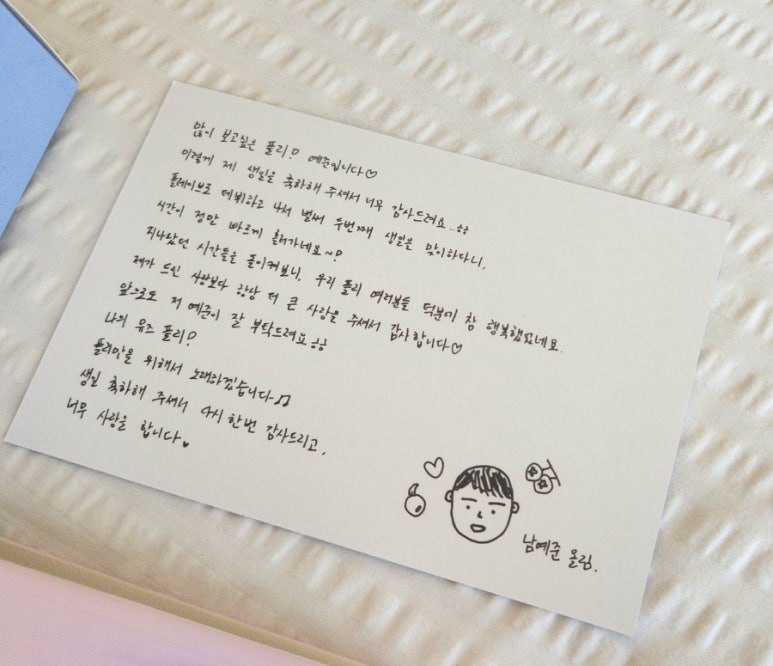 많이 보고싶은 플리! 예준입니다♡
이렇게 제 생일을 축하해 주셔서 너무 감사드려요..ㅎㅎ
플레이브로 데뷔하고 나서 벌써 두번째 생일을 맞이하다니,
시간이 정말 빠르게 흘러가네요~!
지나왔던 시간들을 돌이켜보니, 우리 플리 여러분들 덕분에 참 행복했었네요.
제가 드린 사랑보다 항상 더 큰 사랑을 주셔서 감사합니다♡
앞으로도 저 예준이 잘 부탁드려요ㅎㅎ
나의 뮤즈 플리!
플리만을 위해서 노래하겠습니다♫
생일 축하해 주셔서 다시 한번 감사드리고,
너무 사랑을 합니다♥
남예준 올림.